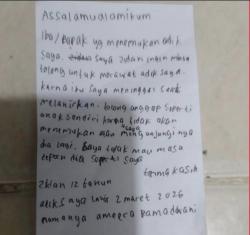 Assalamualaikum
Ibu/Bapak yg menemukan adik
saya. saya zidan ingin minta
tolong untuk merawat adik saya.
karna ibu saya meninggal saat
melahirkan. tolong anggap seperti
anak sendiri karna tidak akan
menemukan atau mengunjungi nya
dia lagi. saya tidak mau masa
depan dia seperti saya
terima kasih
zidan 12 tahun
adik saya lahir 2 maret 2026
namanya ameera ramadhani